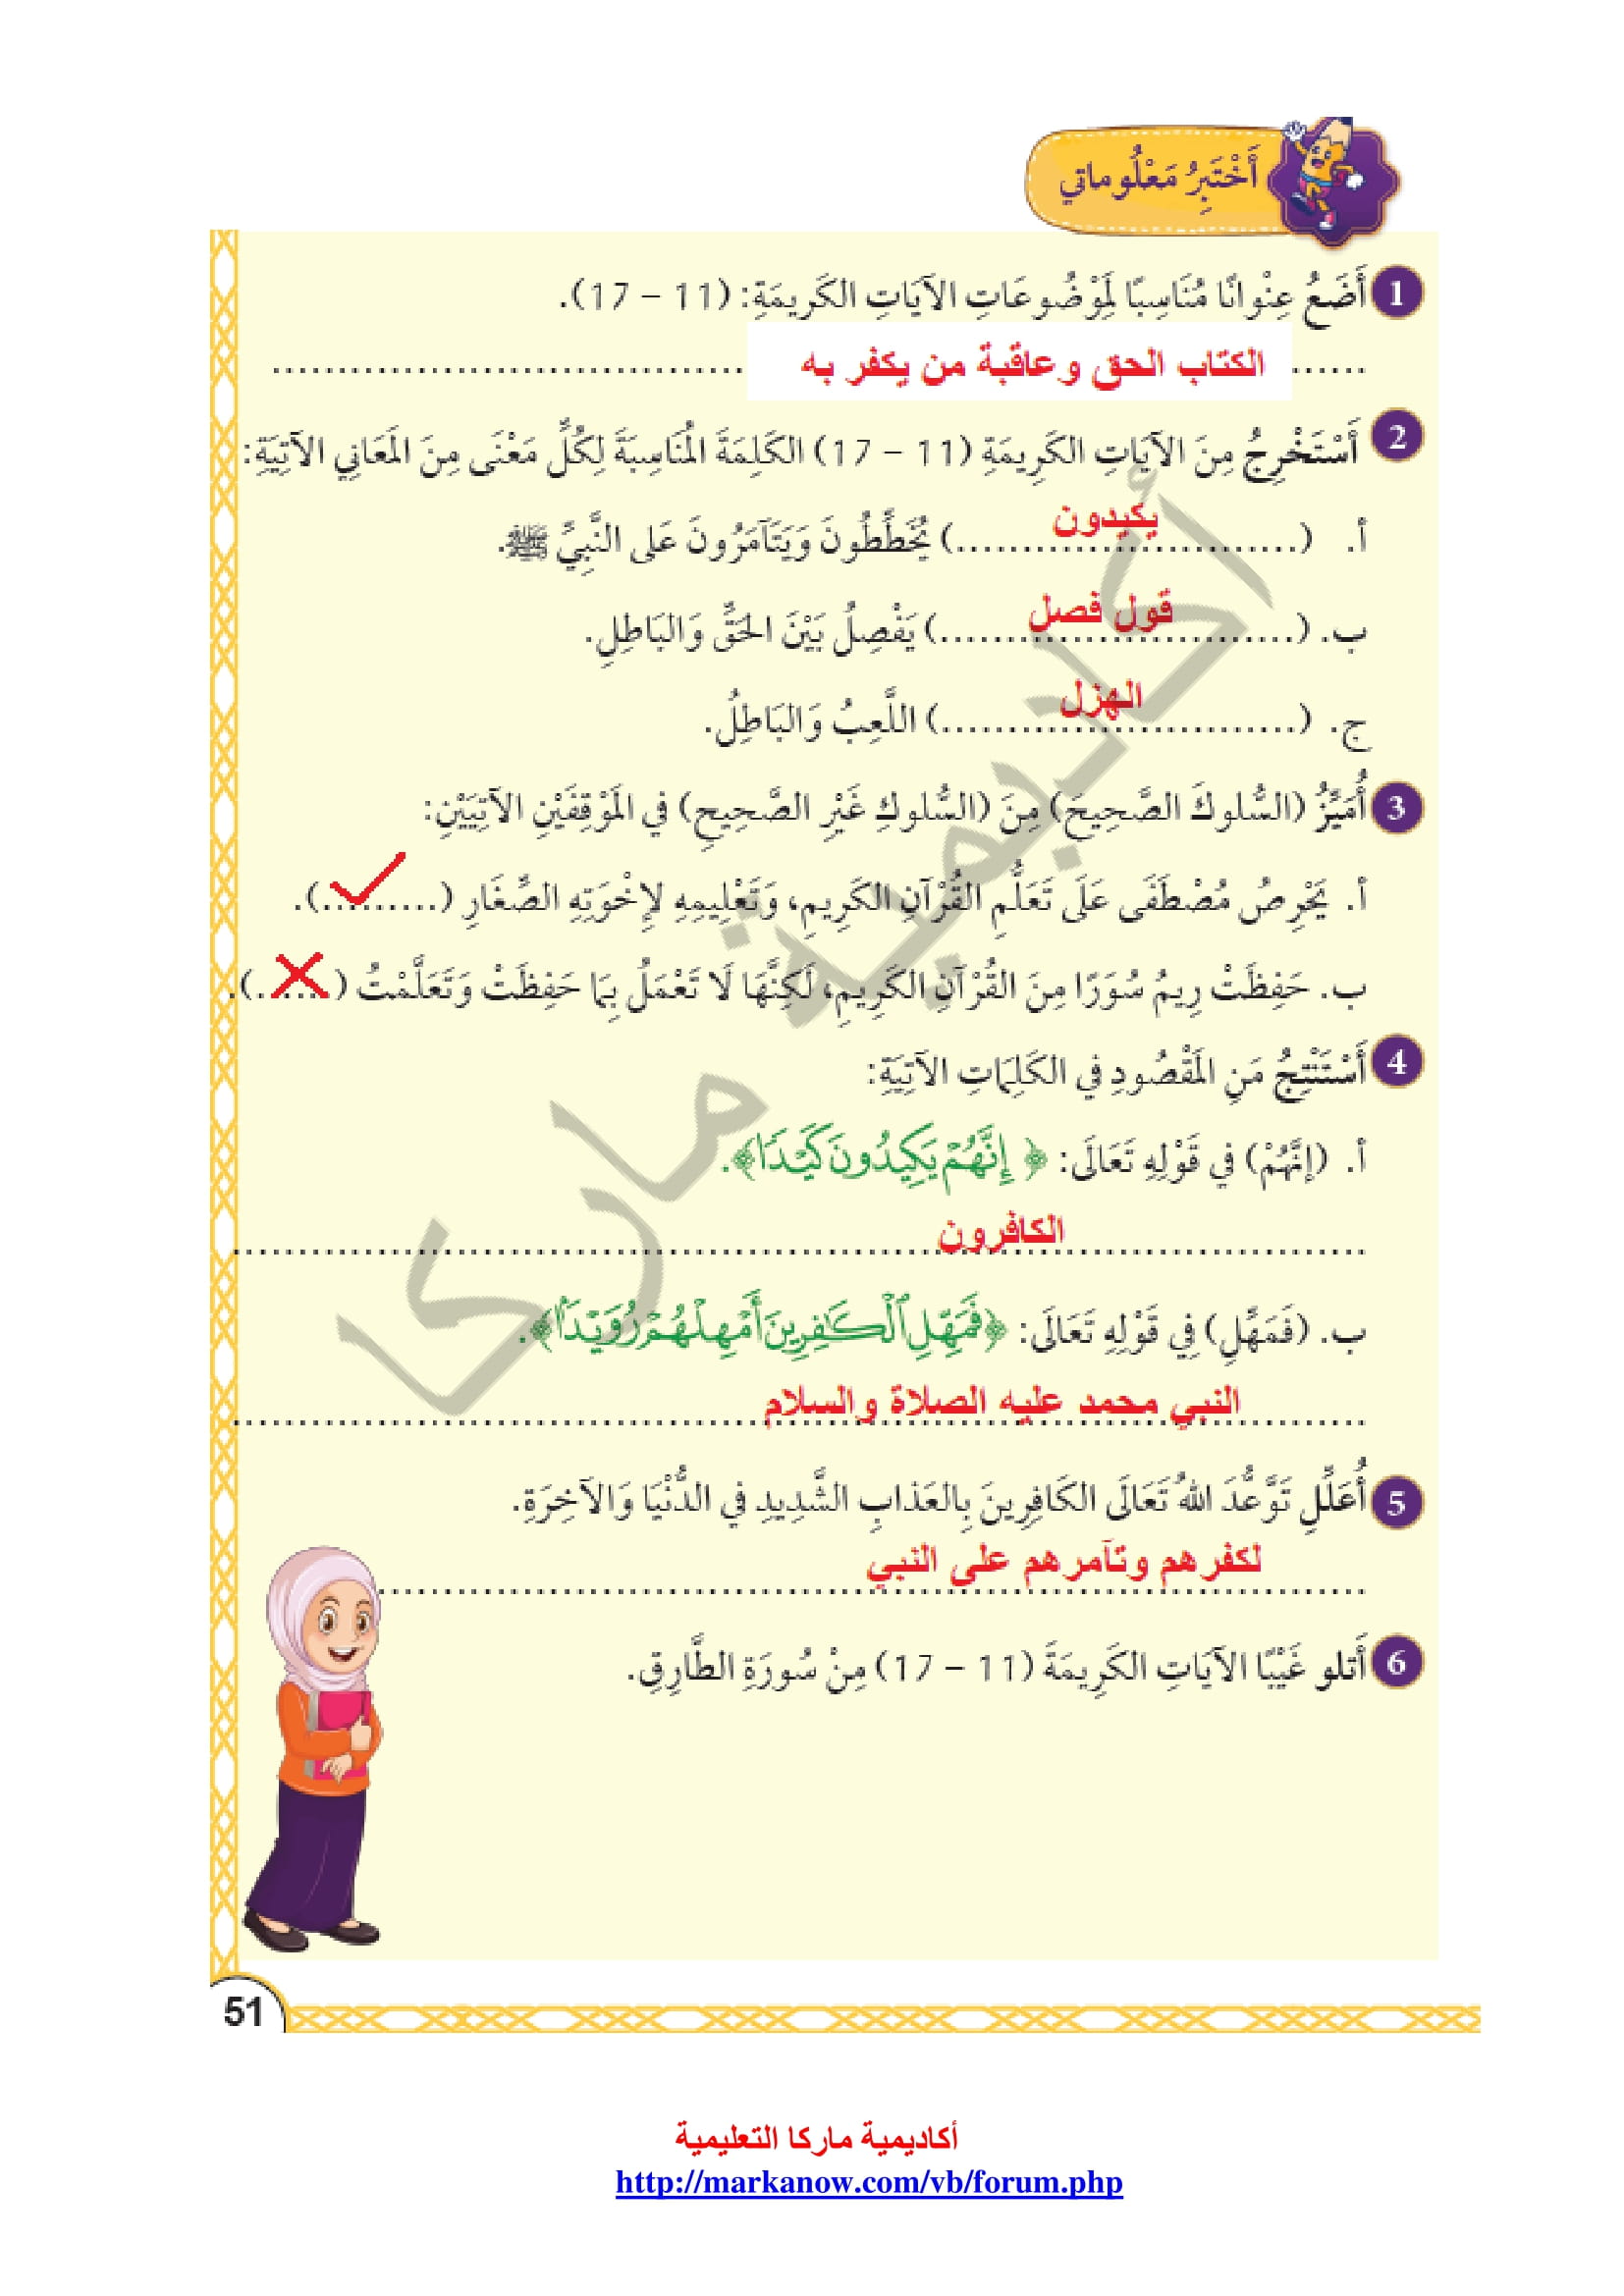 أَخْتَبِرُ مَعْلُوماتي
1 أَضَعُ عِنْوانًا مُنَاسِبًا لِمَوْضُوعَاتِ الآيَاتِ الكَريمَةِ: (11 – 17).
الكتاب الحق وعاقبة من يكفر به
2 أَسْتَخْرِجُ مِنَ الآيَاتِ الكَرِيمَةِ (11 – 17) الكَلِمَةَ المُنَاسِبَةَ لِكُلِّ مَعْنَى مِنَ المَعَانِي الآتِيَةِ:
أ. (يكيدون) يُخَطِّطُونَ وَيَتَآمَرُونَ عَلى النَّبِيِّ ﷺ.
ب. (قول فصل) يَفْصِلُ بَيْنَ الحَقِّ وَالبَاطِلِ.
ج. (الهزل) اللَّعِبُ وَالبَاطِلُ.
3 أُمَيِّزُ (السُّلوكَ الصَّحِيحَ) مِنَ (السُّلوكِ غَيْرِ الصَّحِيحِ) في المَوْقِفَيْنِ الآتِيَيْنِ:
أ. يَحْرِصُ مُصْطَفَى عَلَى تَعَلُّمِ القُرْآنِ الكَرِيمِ، وَتَعْلِيمِهِ لِإخْوَتِهِ الصِّغَارِ (.........).
ب. حَفِظَتْ رِيمُ سُوَرًا مِنَ القُرْآنِ الكَرِيمِ، لَكِنَّهَا لَا تَعْمَلُ بِمَا حَفِظَتْ وَتَعَلَّمْتُ (......).
4 أَسْتَنْتِجُ مَنِ المَقْصُودِ في الكَلِمَاتِ الآتِيَةِ:
أ. (إنَّهُمْ) في قَوْلِهِ تَعَالَى: ﴿ إِنَّهُمْ يَكِيدُونَ كَيْدًا﴾.
الكافرون
ب. (فَمَهِّلِ) فِي قَوْلِهِ تَعَالَى: ﴿فَمَهِّلِ ٱلْكَافِرِينَ أَمْهِلْهُمْ رُوَيْدًا﴾.
النبي محمد عليه الصلاة والسلام
5 أُعَلِّلِ تَوَّعُّدَ اللهُ تَعَالَى الكَافِرِينَ بِالعَذابِ الشَّدِيدِ في الدُّنْيَا وَالآخِرَةِ.
لكفرهم وتآمرهم على النبي
6 أَتلو غَيْبًا الآيَاتِ الكَرِيمَةَ (11 – 17) مِنْ سُورَةِ الطَّارِقِ.
أكاديمية ماركا
51
أكاديمية ماركا التعليمية
http://markanow.com/vb/forum.php